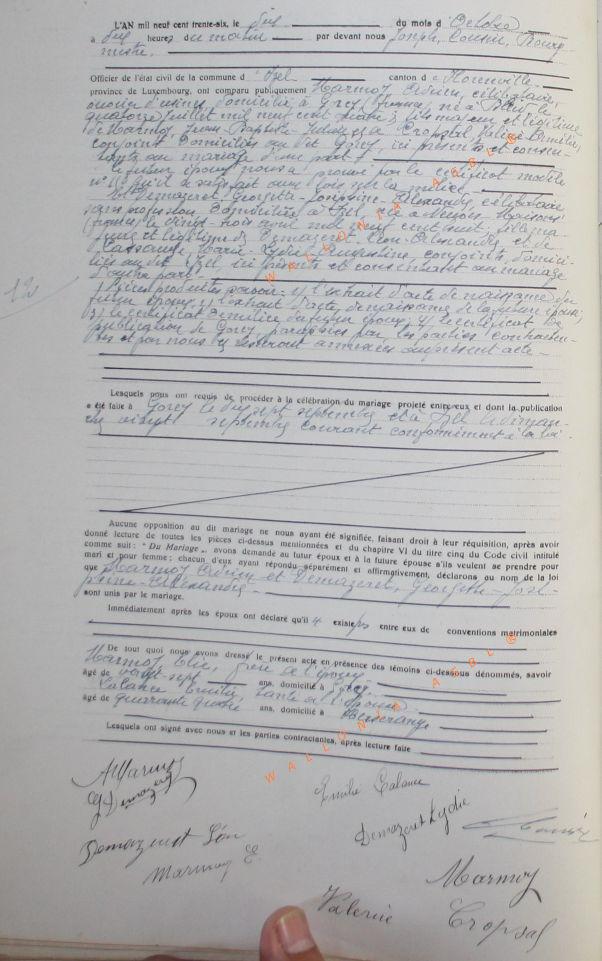 L'AN mil neuf cent trente-six, le dix du mois d'Octobre
à dix heures du matin par devant nous Joseph, Cousin, Bourg
mestre.
Officier de l'état civil de la commune d'Izel canton de Florenville
province de Luxembourg, ont comparu publiquement Marmoy célibataire,
ouvrier d'usines, domicilié à Gorcy (France, né à
quatorze juillet mil neuf cent fils majeur et légitime
de Marmoy, Jean Baptiste et de Cropsal, Valérie
conjoint domiciliés au dit Gorcy, ici présents et consen-
tants au mariage d'une part.
Le futur époux nous a prouvé par le certificat modèle
qu'il a satisfait aux lois sur la milice.
Et Demazeret Georgette-Joséphine-Alexandre, célibataire
sans profession domiciliée à Izel, née à
(France) le vingt-trois avril mil neuf cent huit, fille mi-
neure et légitime de Demazeret, Léon-Alexandre et de
Marie-Lydie conjoints, domici-
liés au dit Izel, ici présents et consentant au mariage
d'autre part.
Pièces produites savoir: 1) l'extrait d'acte de naissance du
futur époux, 2) l'extrait d'acte de naissance de la future épouse,
3) le certificat de milice du futur époux, 4) le certificat de
publication de Gorcy, paraphées par les parties contractan-
tes et par nous, y seront annexées au présent acte
12
Lesquels nous ont requis de procéder à la célébration du mariage projeté entre eux et dont la publication
a été faite à Gorcy le dix sept septembre et à Izel le diman-
che vingt septembre courant conformément à la loi.
Aucune opposition au dit mariage ne nous ayant été signifiée, faisant droit à leur réquisition, après avoir
donné lecture de toutes les pièces ci-dessus mentionnées et du chapitre VI du titre cinq du Code civil intitulé
comme suit: "Du Mariage", avons demandé au futur époux et à la future épouse s'ils veulent se prendre pour
mari et pour femme; chacun d'eux ayant répondu séparément et affirmativement, déclarons au nom de la loi
que Marmoy et Demazeret, Georgette-José-
phine-Alexandre
sont unis par le mariage.
Immédiatement après les époux ont déclaré qu'il n'existe pas entre eux de conventions matrimoniales
De tout quoi nous avons dressé le présent acte en présence des témoins ci-dessous dénommés, savoir
Marmoy Elie, frère de l'époux
âgé de vingt-sept ans, domicilié à Gorcy
Calance Emilie, tante de l'épouse
âgé de quarante quatre ans, domicilié à
Lesquels ont signé avec nous et les parties contractantes, après lecture faite
WALLONIA ASBL®
WALLONIA ASBL®
A Marmoy
G Demazeret
Emilie Calance
Demazeret Léon
Demazeret Lydie
Cousin
Marmoy E
Marmoy
Valerie
Cropsal